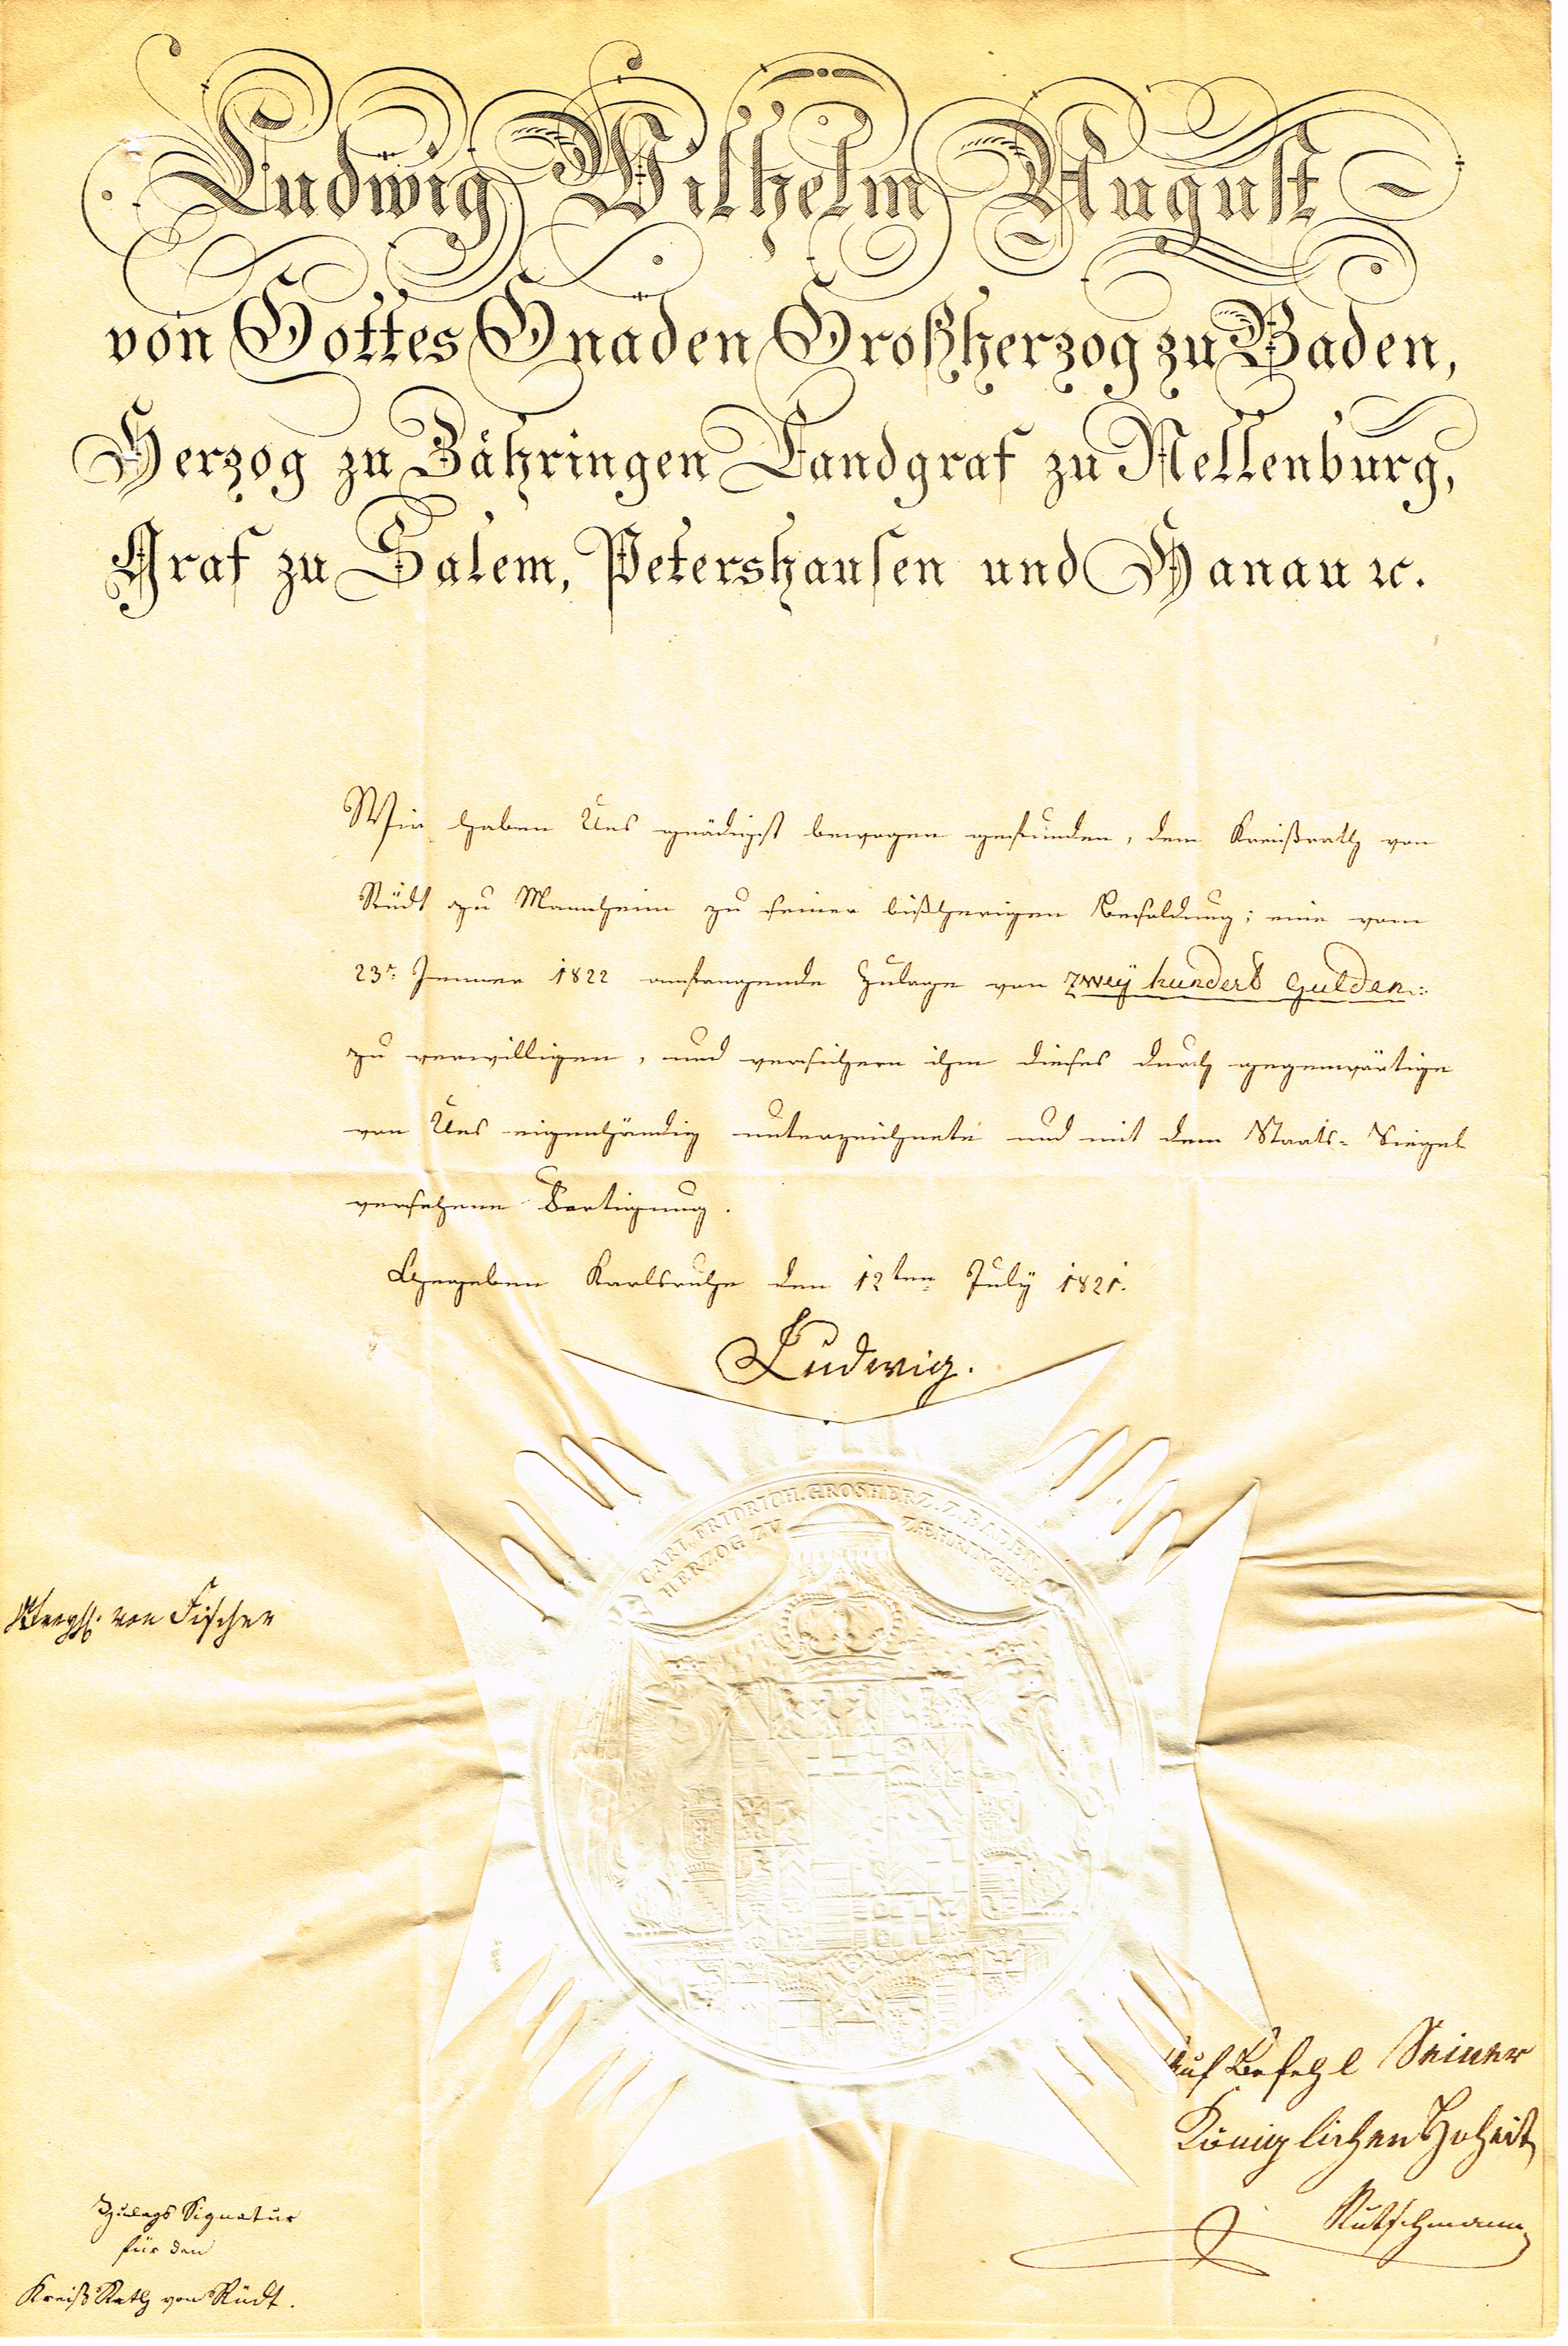 Ludwig Wilhelm August
von Gottes Gnaden Großherzog zu Baden,
Herzog zu Zähringen Landgraf zu Nellenburg,
Graf zu Salem, Petershausen und Hanau ꝛc.
Wir haben Uns gnädigst bewogen gefunden, dem Kreißrath von
Rüdt zu Mannheim zu seiner bißherigen Besoldung; eine vom
23r. Jenner 1822 anfangende Zulage von Zweÿ hundert Gulden
zu verwilligen, und versichern ihm dieses durch gegenwärtige
von Uns eigenhändig unterzeichnete und mit dem Staats-Siegel
versehene Fertigung.
Gegeben Karlsruhe den 12ten July 1821.
Ludwig.
CARL FRIDRICH. GROSHERZ. Z. BADEN
HERZOG ZU ZÆHRINGEN
von Fischer
Auf Befehl Seiner
Königlichen Hoheit
Rutschmann
Zulags Signatur
für den
Kreiß Rath von Rüdt.